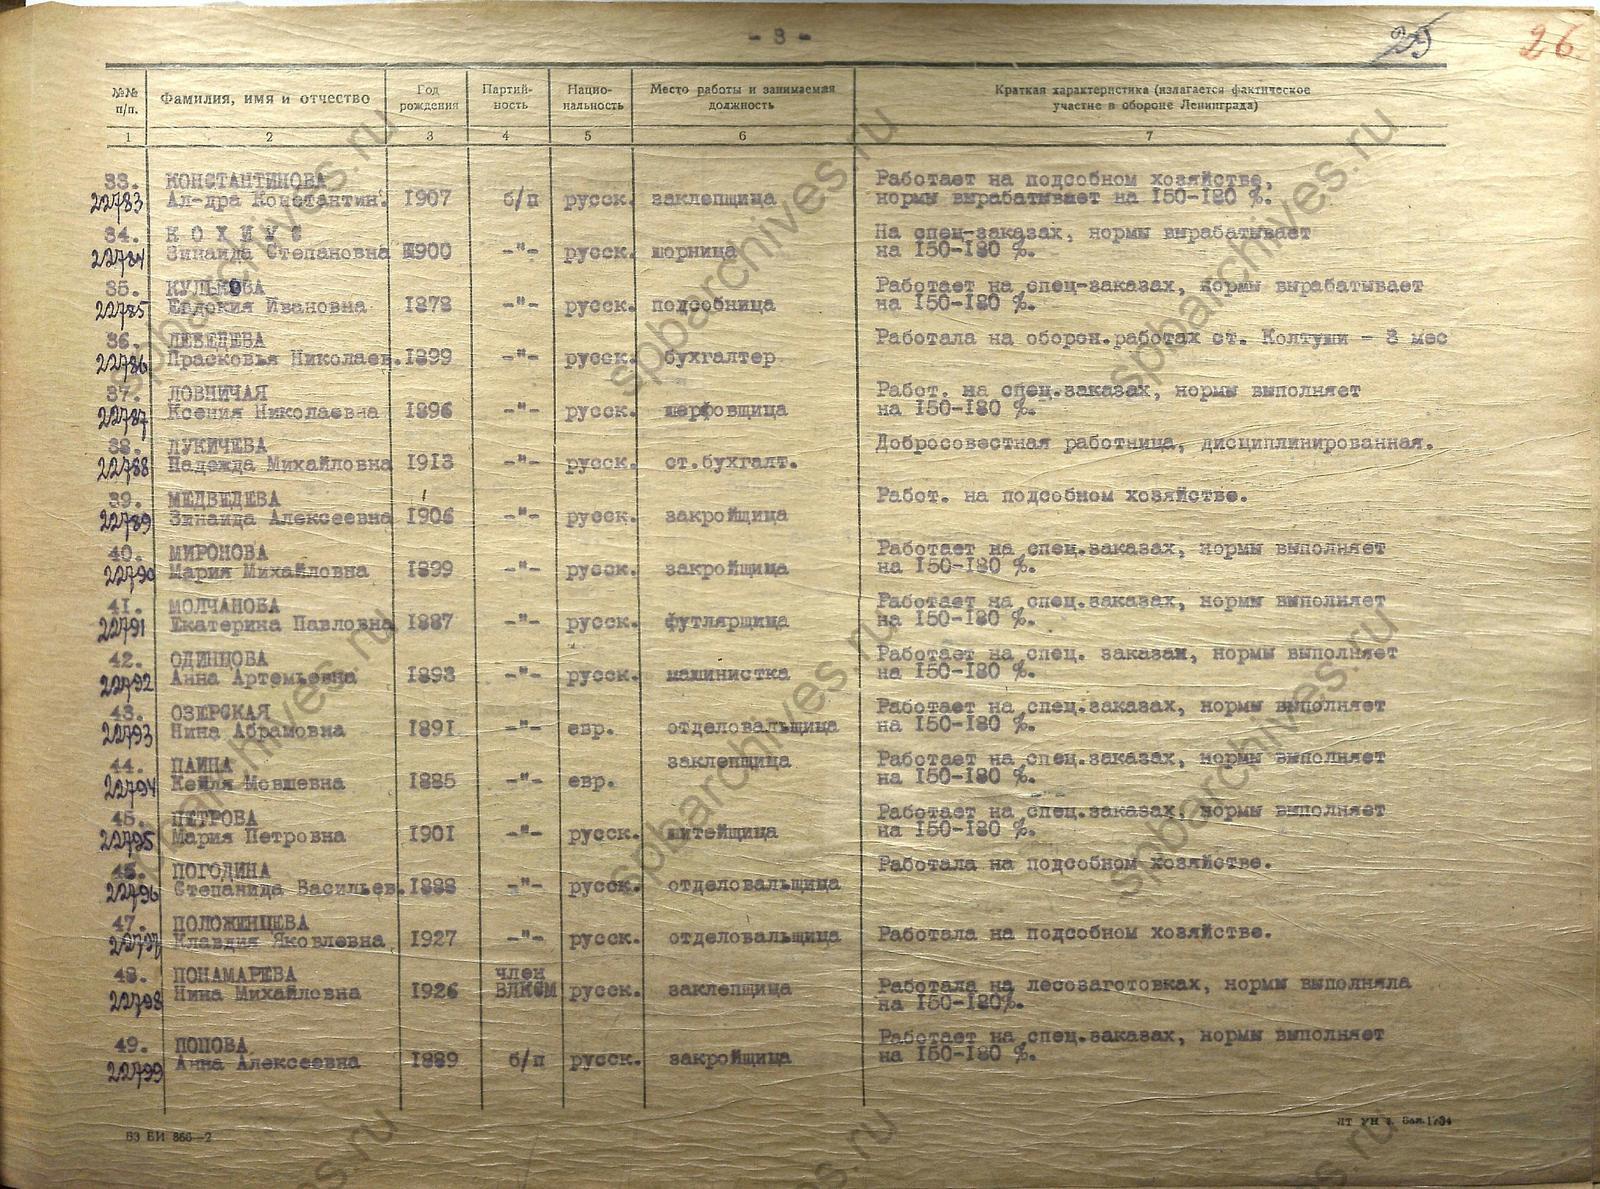 - 3 -
25
26
№№ п/п. Фамилия, имя и отчество Год рождения Партий-ность Нацио-нальность Место работы и занимаемая должность Краткая характеристика (излагается фактическое участие в обороне Ленинграда)
1 2 3 4 5 6 7
33. КОНСТАНТИНОВА Работает на подсобном хозяйстве,
22783 Ал-дра Константин. 1907 б/п русск. заклепщица нормы вырабатывает на 150-180 %.
34. К О Х И У С На спец-заказах, нормы вырабатывает
22784 Зинаида Степановна 1900 -"- русск. шорница на 150-180 %.
35. КУЛЬКОВА Работает на спец-заказах, нормы вырабатывает
22785 Евдокия Ивановна 1878 -"- русск. подсобница на 150-180 %.
36. ЛЕБЕДЕВА Работала на оборон.работах ст. Колтуши - 3 мес
22786 Прасковья Николаев. 1899 -"- русск. бухгалтер
37. ЛОВНИЧАЯ Работ. на спец.заказах, нормы выполняет
22787 Ксения Николаевна 1896 -"- русск. шерфовщица на 150-180 %.
38. ЛУКИЧЕВА Добросовестная работница, дисциплинированная.
22788 Надежда Михайловна 1913 -"- русск. ст.бухгалт.
39. МЕДВЕДЕВА Работ. на подсобном хозяйстве.
22789 Зинаида Алексеевна 1906 -"- русск. закройщица
40. МИРОНОВА Работает на спец.заказах, нормы выполняет
22790 Мария Михайловна 1899 -"- русск. закройщица на 150-180 %.
41. МОЛЧАНОВА Работает на спец.заказах, нормы выполняет
22791 Екатерина Павловна 1887 -"- русск. футлярщица на 150-180 %.
42. ОДИНЦОВА Работает на спец. заказах, нормы выполняет
22792 Анна Артемьевна 1893 -"- русск. машинистка на 150-180 %.
43. ОЗЕРСКАЯ Работает на спец.заказах, нормы выполняет
22793 Нина Абрамовна 1891 -"- евр. отделовальщица на 150-180 %.
44. ПАИНА заклепщица Работает на спец.заказах, нормы выполняет
22794 Кейля Мовшевна 1885 -"- евр. на 150-180 %.
45. ПЕТРОВА Работает на спец.заказах, нормы выполняет
22795 Мария Петровна 1901 -"- русск. шитейщица на 150-180 %.
46. ПОГОДИНА Работала на подсобном хозяйстве.
22796 Степанида Васильев. 1888 -"- русск. отделовальщица
47. ПОЛОЖЕНЦЕВА
22797 Клавдия Яковлевна 1927 -"- русск. отделовальщица Работала на подсобном хозяйстве.
48. ПОНАМАРЕВА член Работала на лесозаготовках, нормы выполняла
22798 Нина Михайловна 1926 ВЛКСМ русск. заклепщица на 150-180%.
49. ПОПОВА Работает на спец.заказах, нормы выполняет
22799 Анна Алексеевна 1889 б/п русск. закройщица на 150-180 %.
БЭ БИ 866-2
spbarchives.ru